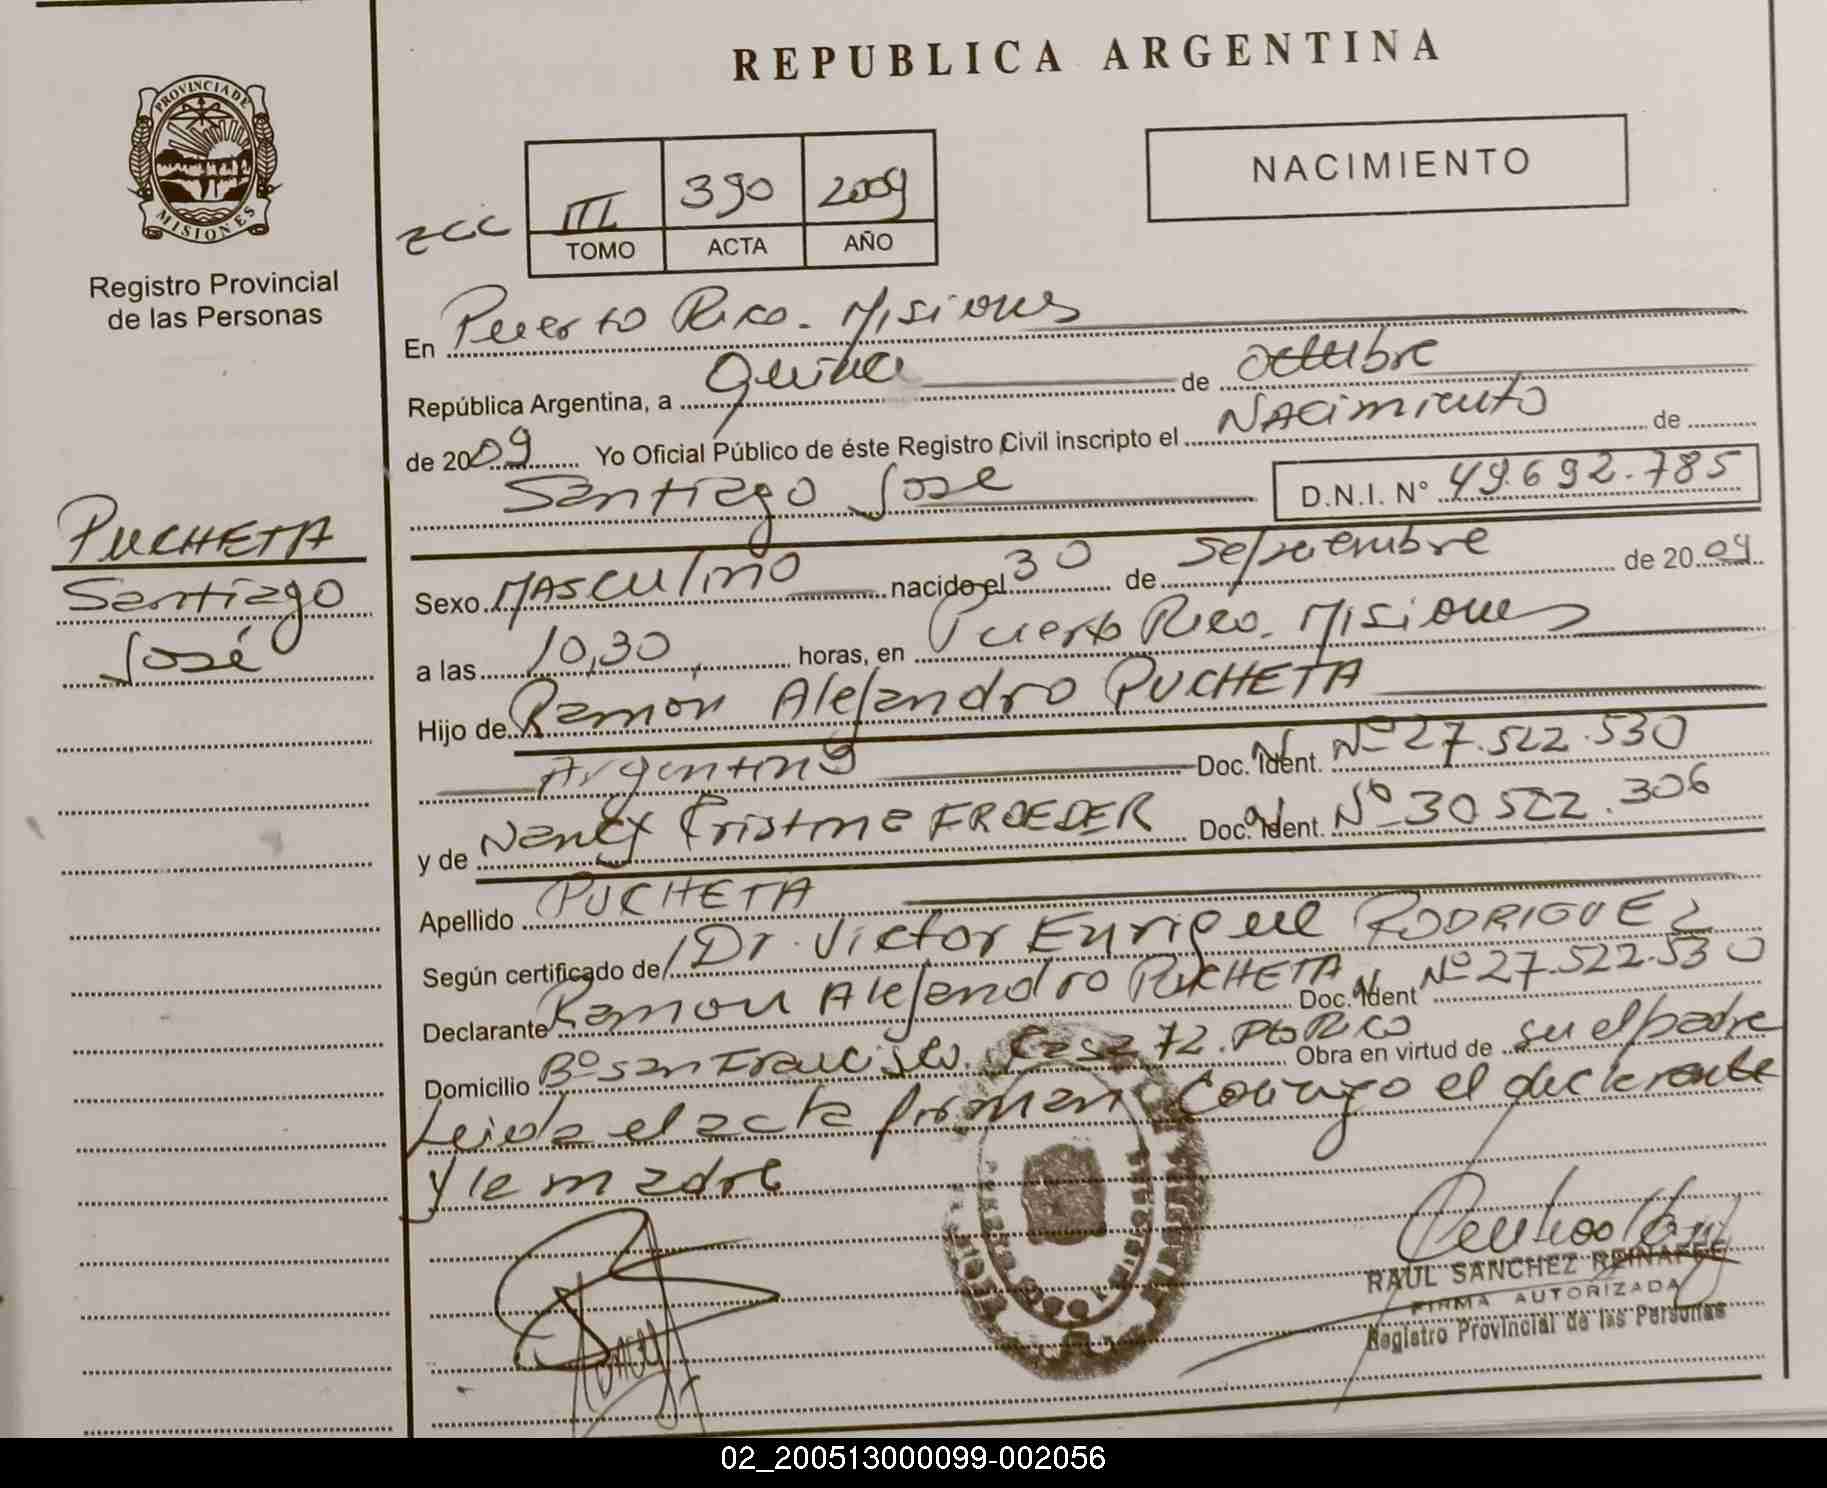 REPUBLICA ARGENTINA
PROVINCIA DE
MISIONES
Registro Provincial
de las Personas
NACIMIENTO
III 390 2009
TOMO ACTA AÑO
En Puerto Rico. Misiones
República Argentina, a Quince de octubre
de 2009 Yo Oficial Público de éste Registro Civil inscripto el Nacimiento de
Santiago José D.N.I. N° 49.692.785
PUCHETA
Santiago
José
Sexo Masculino nacido el 30 de Septiembre de 2009
a las 10,30 horas, en Puerto Rico. Misiones
Hijo de Ramón Alejandro PUCHETA
Argentino Doc. Ident. Nº 27.522.530
y de Nancy Cristina FROEDER Doc. Ident. Nº 30.522.306
Apellido PUCHETA
Según certificado de Dr. Victor Enrique RODRIGUEZ
Declarante Ramon Alejandro PUCHETA Doc. Ident Nº 27.522.530
Domicilio Bº San Francisco. Casa 72. Pto Rico Obra en virtud de su el padre
Leida el acta firman conmigo el declarante
y la madre
RAUL SANCHEZ REINAFFE
FIRMA AUTORIZADA
Registro Provincial de las Personas
02_200513000099-002056